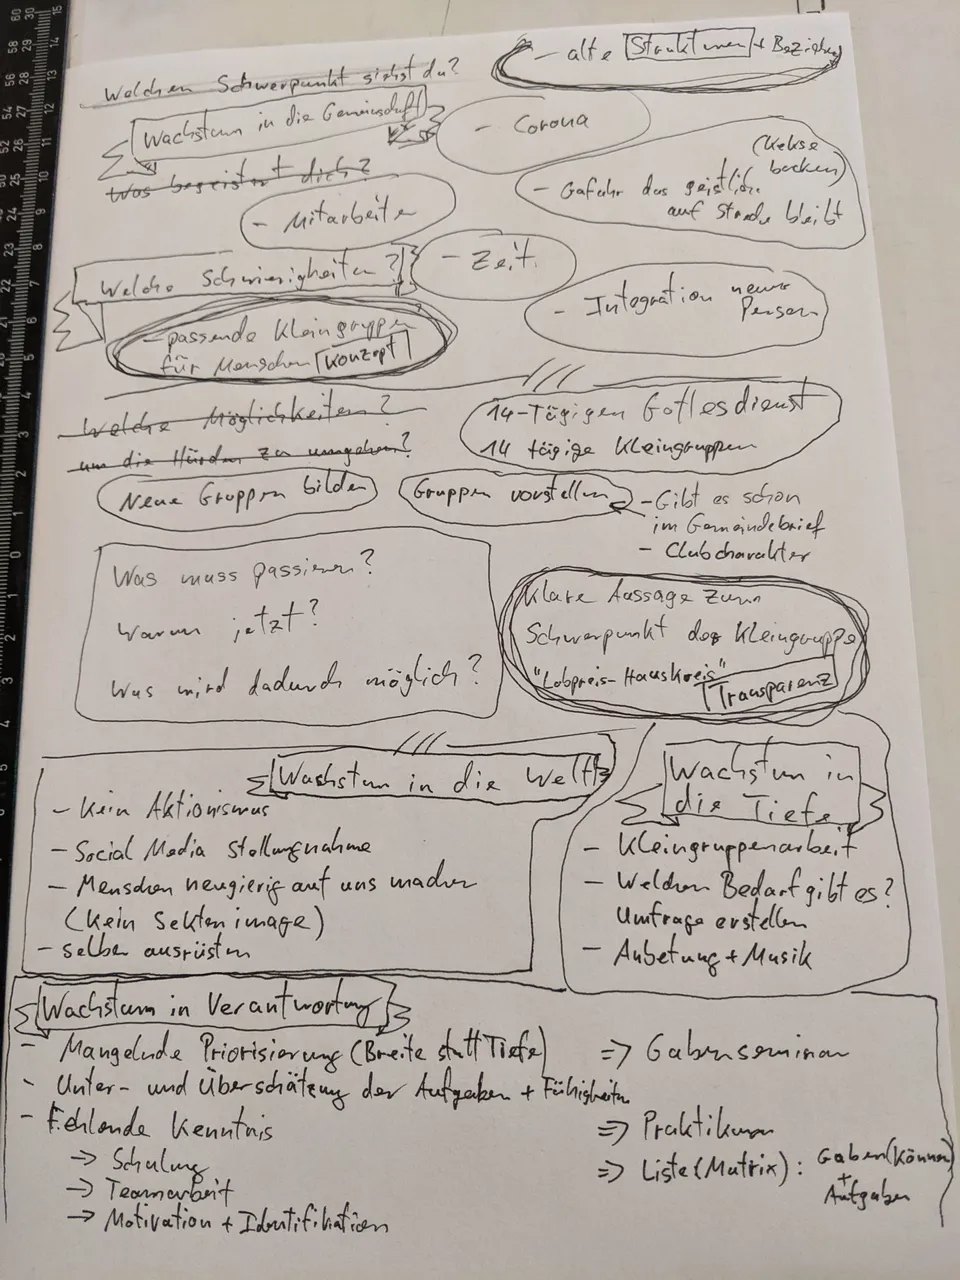 - alte Strukturen + Beziehung
Welchen Schwerpunkt siehst du?
Wachstum in die Gemeinschaft
- Corona
Was begeistert dich?
- Mitarbeiter
(Kekse
backen)
- Gefahr das geistlich
auf Strecke bleibt
Welche Schwierigkeiten?
- Zeit
- Integration neuer
Person
- passende Kleingruppen
für Menschen Konzept
Welche Möglichkeiten?
um die Hürden zu umgehen?
14-Tägigen Gottesdienst
14 tägige Kleingruppen
Neue Gruppen bilden
Gruppen vorstellen
- Gibt es schon
im Gemeindebrief
- Clubcharakter
Was muss passieren?
Warum jetzt?
Was wird dadurch möglich?
Klare Aussage zum
Schwerpunkt der Kleingruppe
"Lobpreis-Hauskreis"
Transparenz
Wachstum in die Welt
- Kein Aktionismus
- Social Media Stellungnahme
- Menschen neugierig auf uns machen
(kein Sektenimage)
- selber ausrüsten
Wachstum in
die Tiefe
- Kleingruppenarbeit
- Welchen Bedarf gibt es?
Umfrage erstellen
- Anbetung + Musik
Wachstum in Verantwortung
- Mangelnde Priorisierung (Breite statt Tiefe)
- Unter- und Überschätzung der Aufgaben + Fähigkeiten
- Fehlende Kenntnis
→ Schulung
→ Teamarbeit
→ Motivation + Identifikation
⇒ Gabenseminar
⇒ Praktikum
⇒ Liste (Matrix): Gaben (Können)
+
Aufgaben